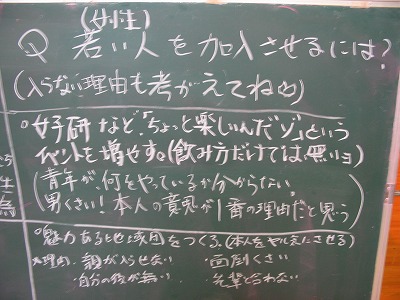 (女性)
Q 若い人を加入させるには?
(入らない理由も考がえてね)
。女子研など「ちょっと楽しいんだゾ」という
イベントを増やす。(飲み方だけでは無いヨ)
(青年が、何をやっているか分からない。
男くさい! 本人の意気が1番の理由だと思う)
。魅力ある地域団をつくる。(本人をやる気にさせる)
理由. 親が入らせない ・面倒くさい
・自分の後が無い ・先輩と合わない
生